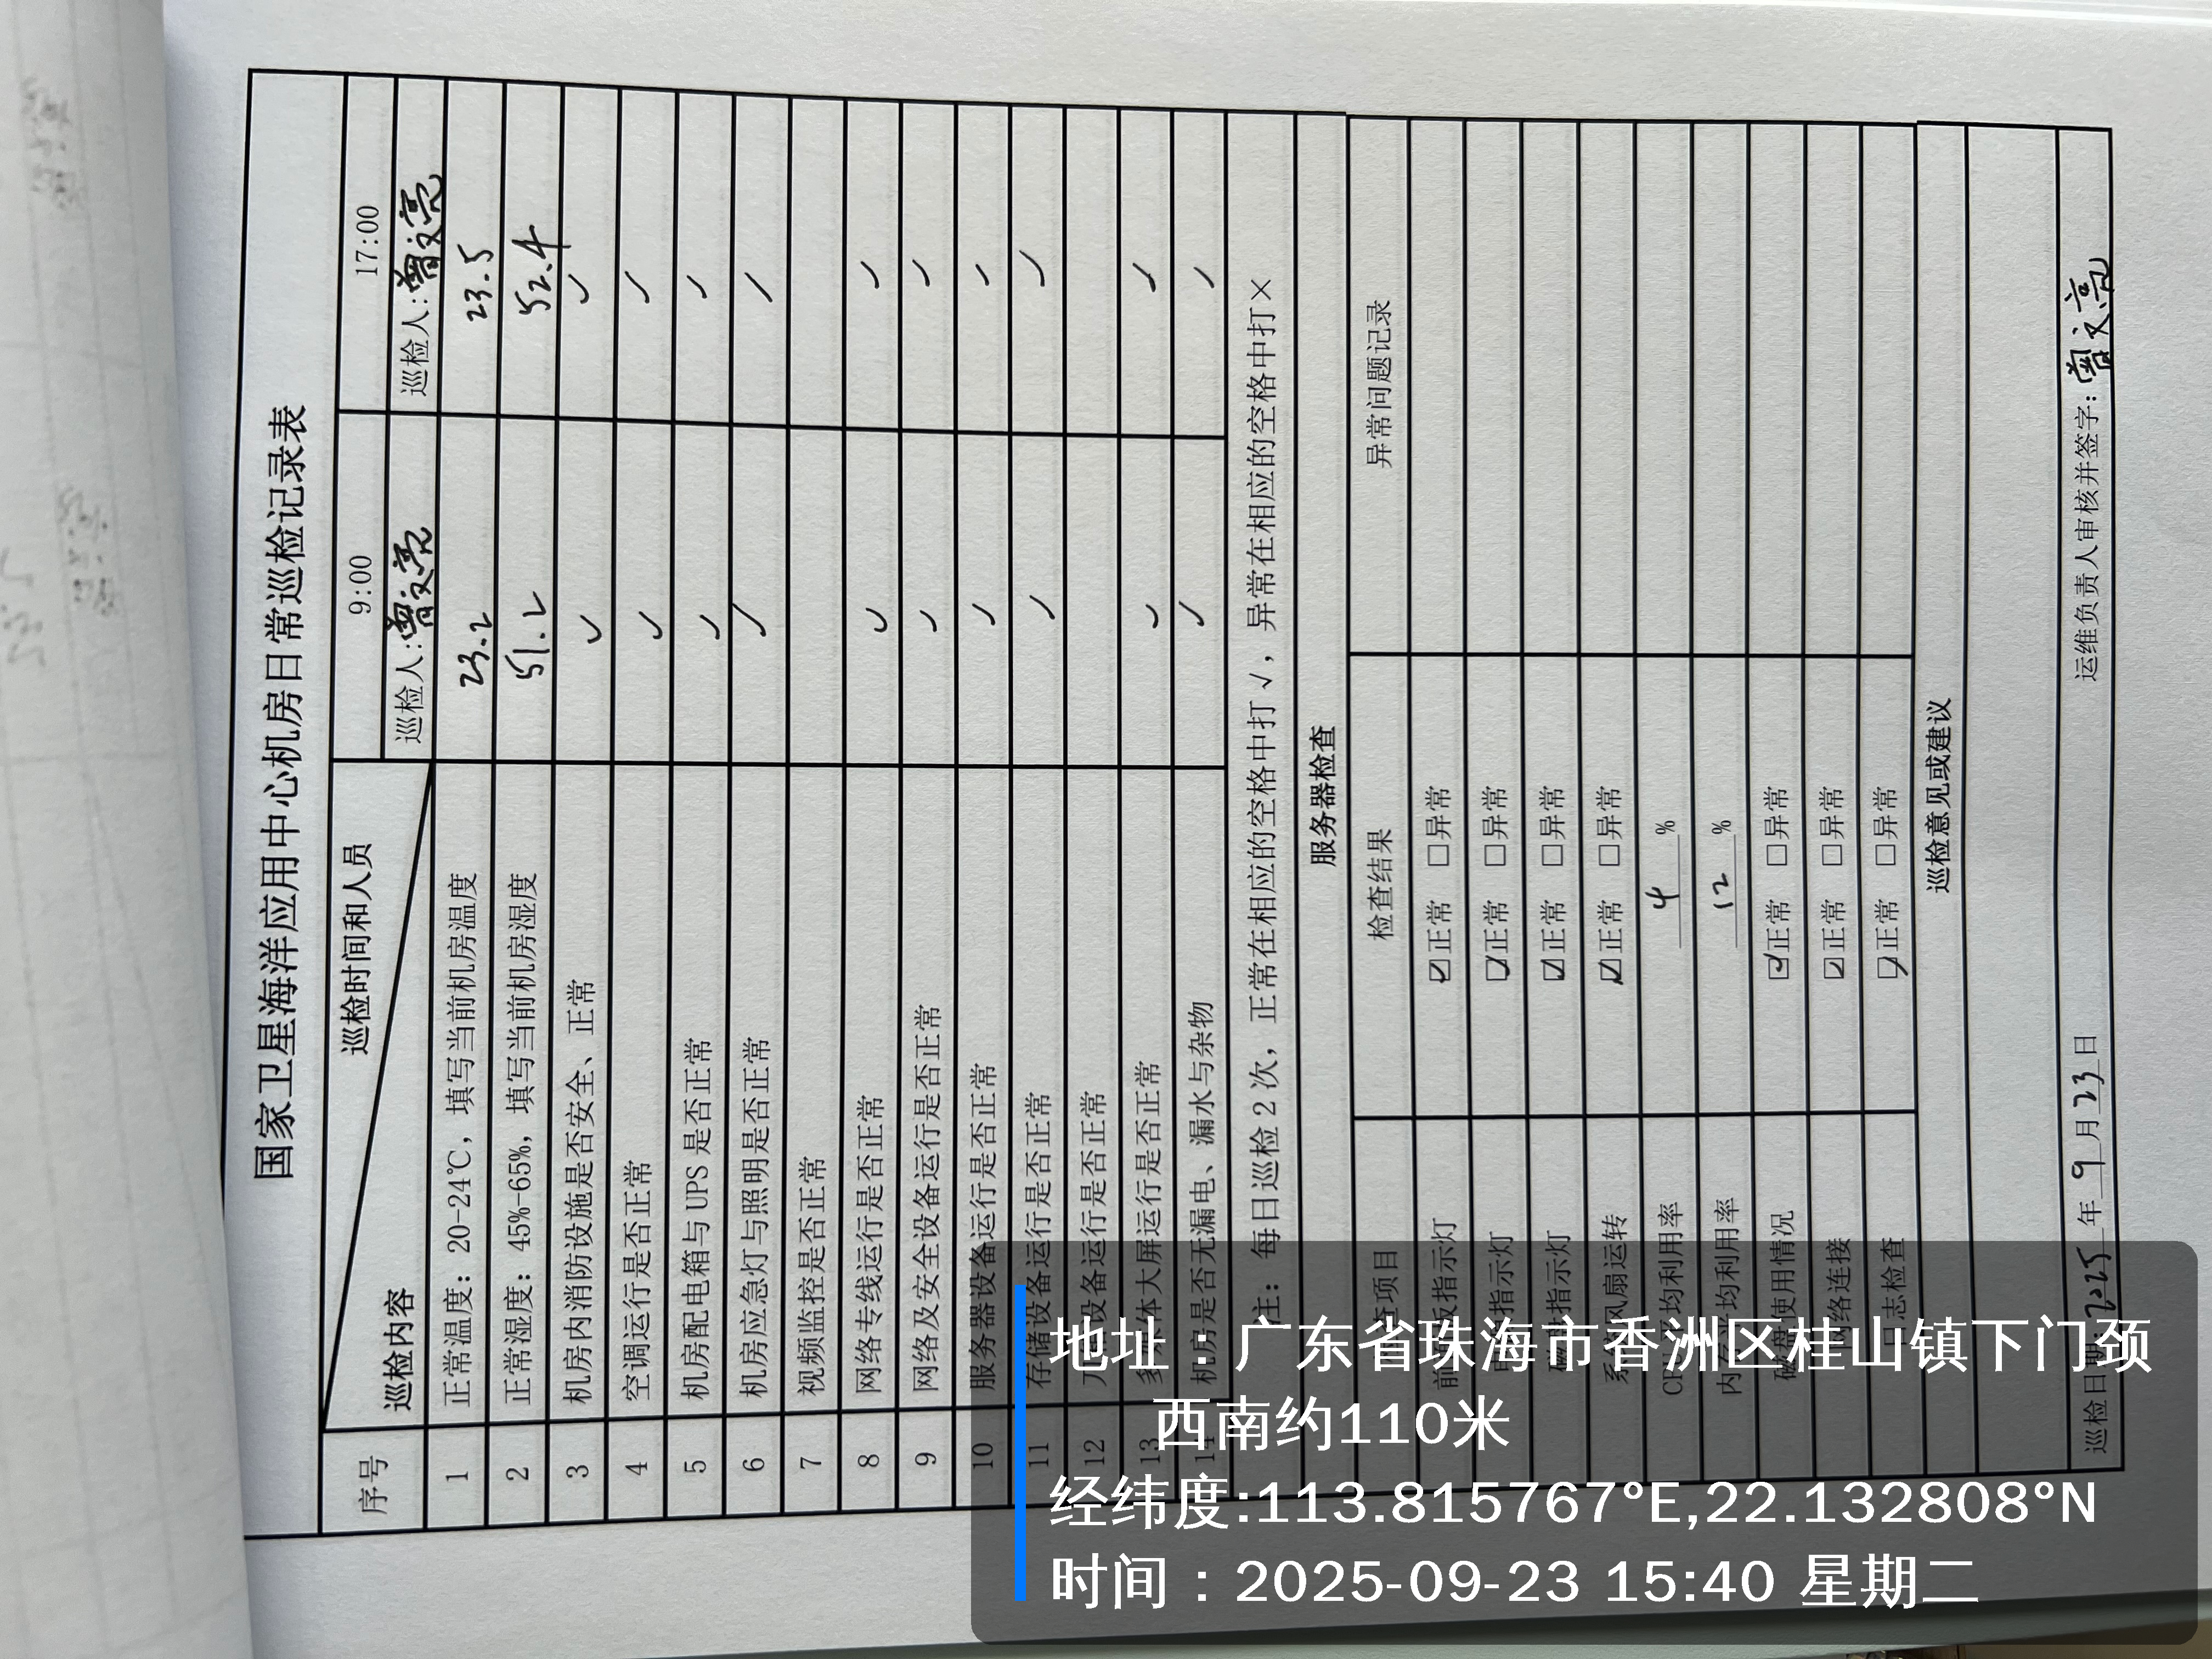 国家卫星海洋应用中心机房日常巡检记录表
序号 巡检内容 巡检时间和人员 9:00 17:00
巡检人:曾文亮 巡检人:曾文亮
1 正常温度：20-24℃，填写当前机房温度 23.2 23.5
2 正常湿度：45%-65%，填写当前机房湿度 51.2 52.4
3 机房内消防设施是否安全、正常 ✓ ✓
4 空调运行是否正常 ✓ ✓
5 机房配电箱与 UPS 是否正常 ✓ ✓
6 机房应急灯与照明是否正常 ✓ ✓
7 视频监控是否正常
8 网络专线运行是否正常 ✓ ✓
9 网络及安全设备运行是否正常 ✓ ✓
10 服务器设备运行是否正常 ✓ ✓
11 存储设备运行是否正常 ✓ ✓
12 设备运行是否正常
13 多媒体大屏运行是否正常 ✓ ✓
14 机房是否无漏电、漏水与杂物 ✓ ✓
注：每日巡检 2 次，正常在相应的空格中打 √，异常在相应的空格中打×
服务器检查
检查项目 检查结果 异常问题记录
板指示灯 ☑正常 □异常
指示灯 ☑正常 □异常
指示灯 ☑正常 □异常
系统风扇运转 ☑正常 □异常
CPU平均利用率 4 %
内存平均利用率 12 %
磁盘使用情况 ☑正常 □异常
网络连接 ☑正常 □异常
日志检查 ☑正常 □异常
巡检意见或建议
巡检日期：2025 年 9 月 23 日 运维负责人审核并签字：曾文亮
地址：广东省珠海市香洲区桂山镇下门颈
西南约110米
经纬度:113.815767°E,22.132808°N
时间：2025-09-23 15:40 星期二